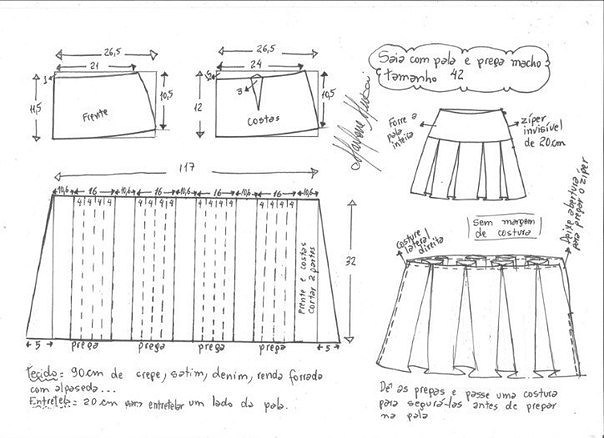 Saia com pala e prega macho
tamanho 42
26,5
21
1
11,5
10,5
Frente
26,5
24
12
3
10,5
costas
Forre a
pala
inteira
zíper
invisível
de 20cm
117
10,6 16 10,6 16 10,6 16 10,6 16 10,6
4 4 4 4 4 4 4 4 4 4 4 4 4 4 4 4
Frente e costas
cortar 2 partes
32
5 prega prega prega prega 5
sem margem
de costura
costure
lateral
direita
Deixe abertura
para pregar o zíper
Tecido: 90cm de crepe, satim, denim, renda forrada
com alpaseda...
Entretela: 20cm para entretelar um lado da pala.
Dê as pregas e passe uma costura
para segurá-las antes de pregar
na pala